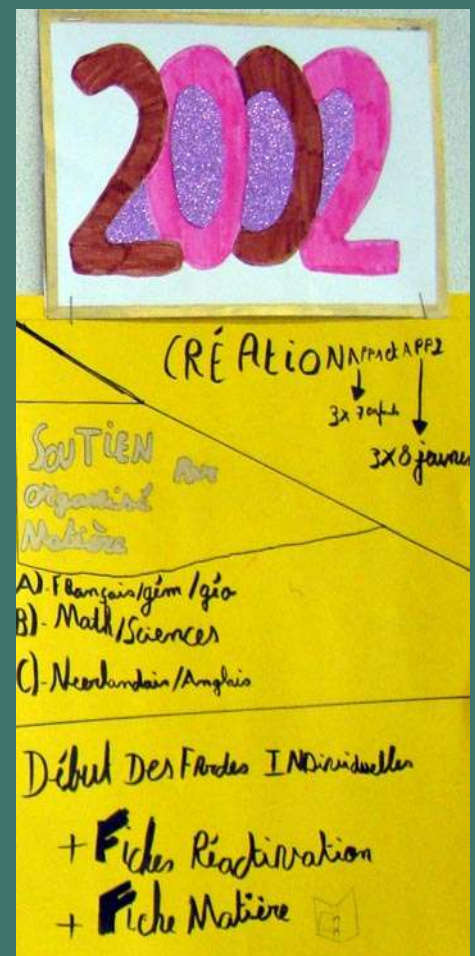 2002
CRÉAtioN APP1 et APP2
3x 7 enfants
3x8 jeunes
SOUTIEN PAR
Organisé
Matière
A)-Français/gém/géo
B)-Math/Sciences
C)-Neerlandais/Anglais
Début Des FARdes INDividuelles
+ Fiches Réactivation
+ Fiche Matière